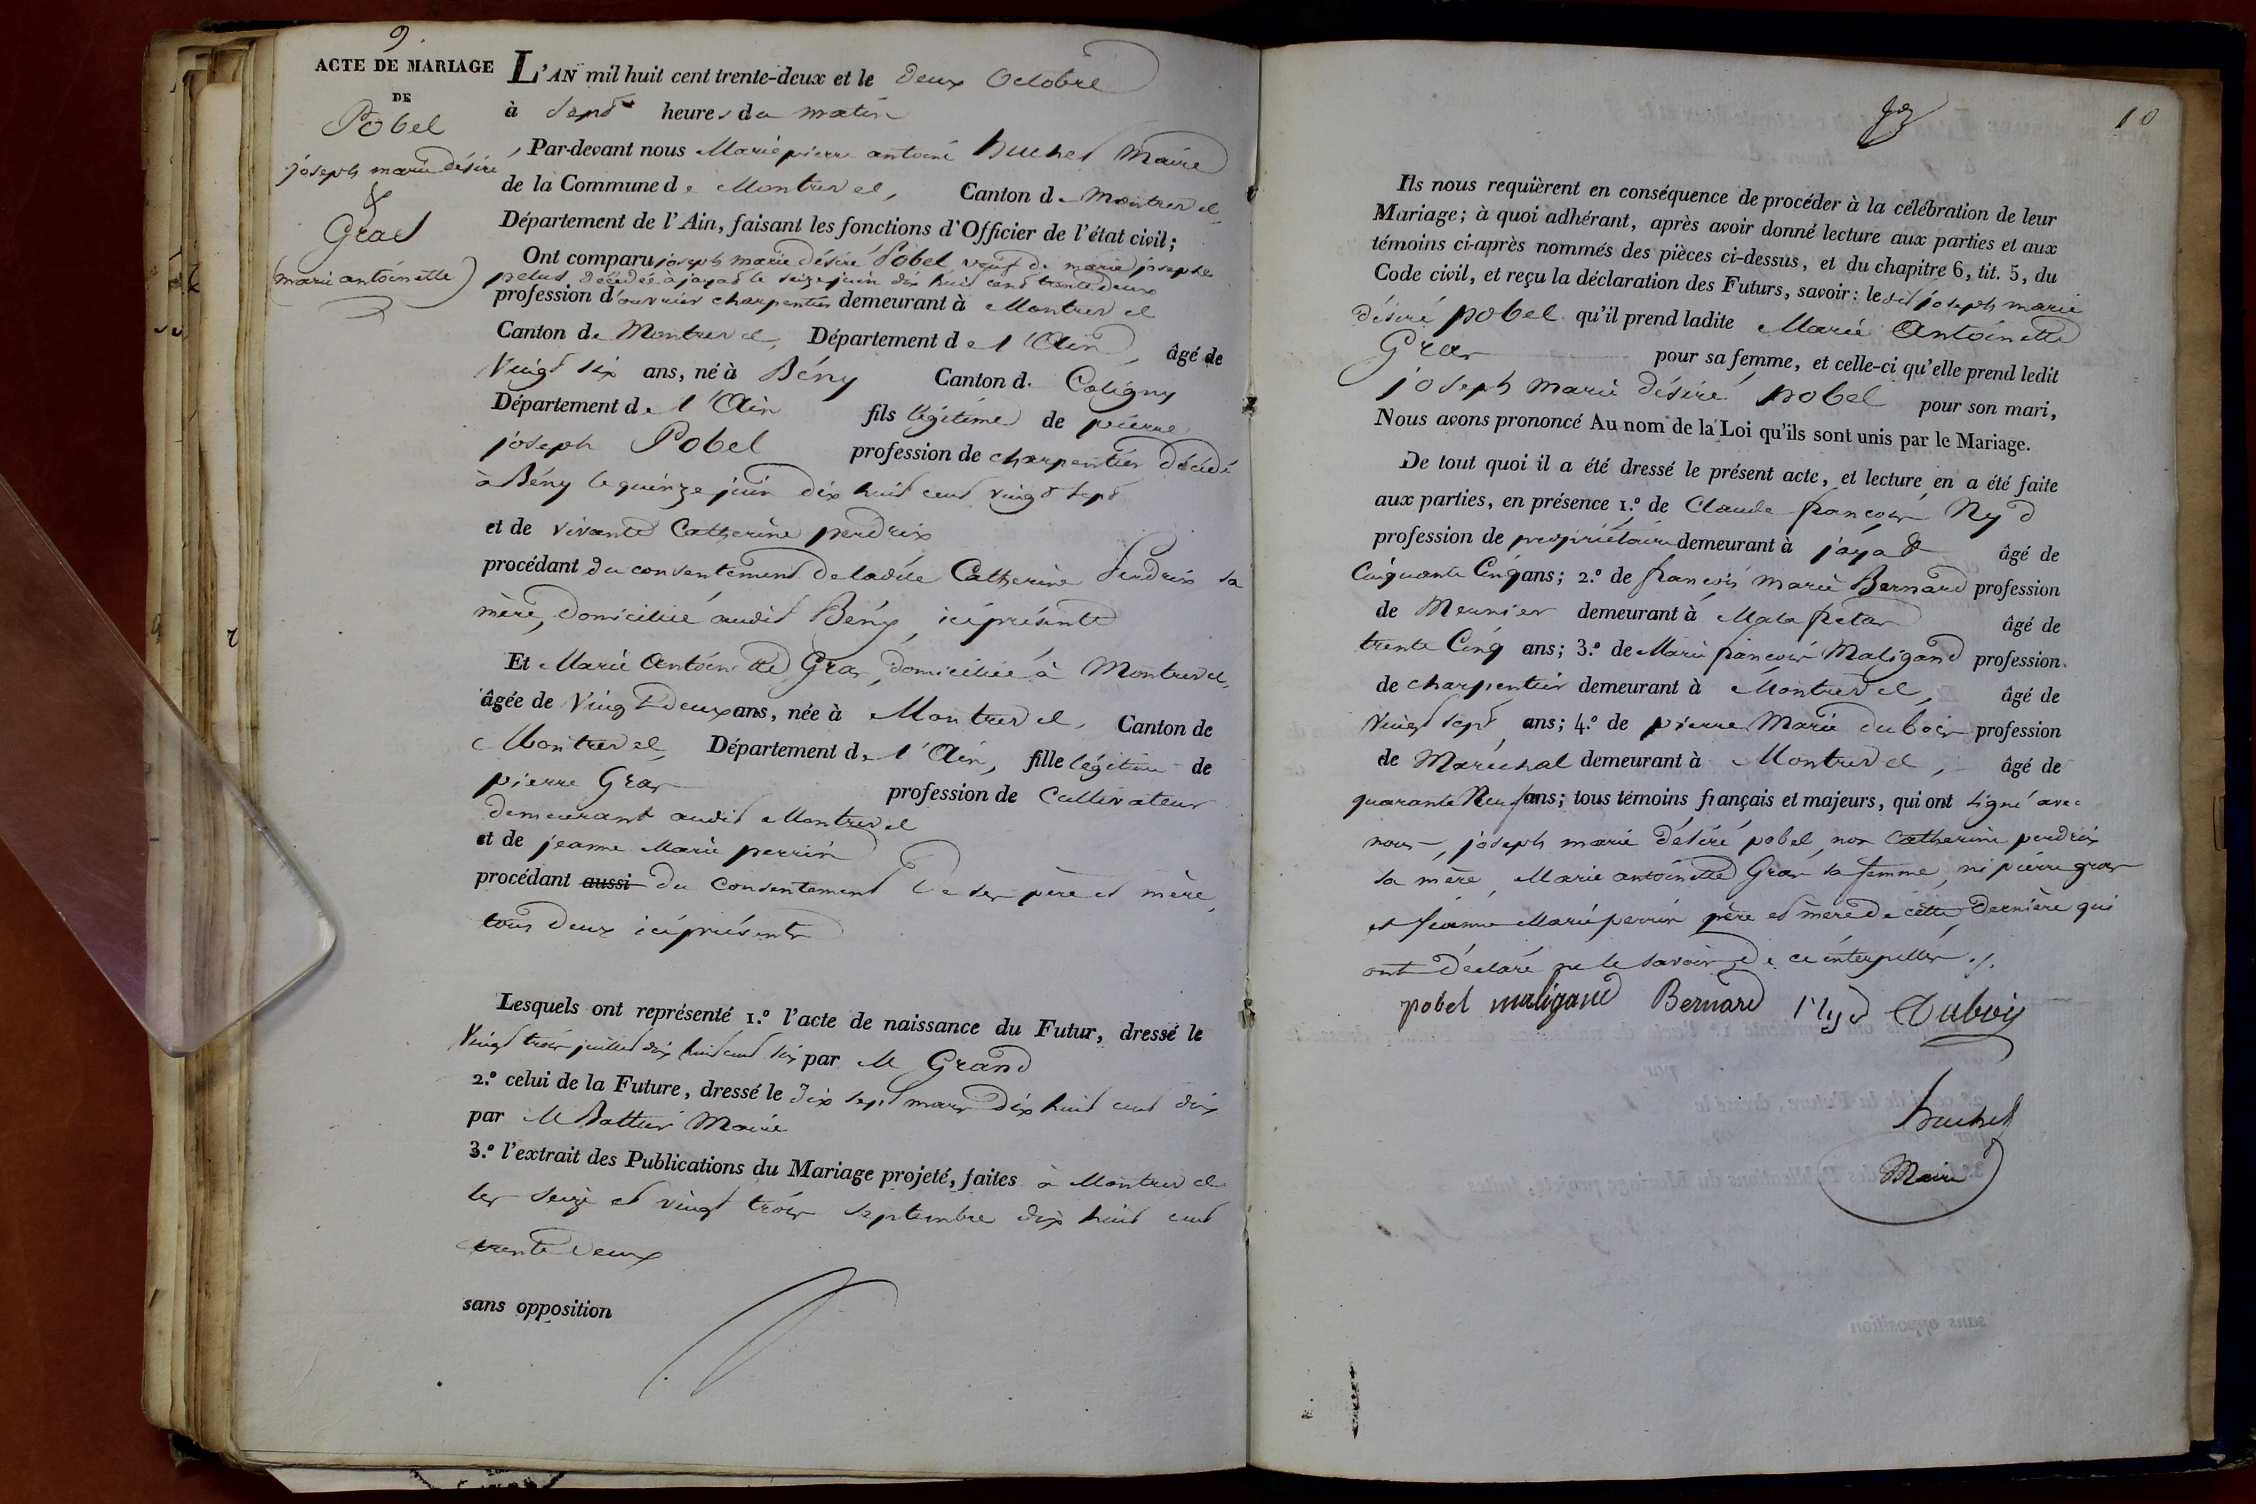 9.
ACTE DE MARIAGE
DE
Pobel
joseph marie désiré
&
Gras
(marie antoinette)
L'AN mil huit cent trente-deux et le deux Octobre
à sept heures du matin
Par-devant nous Marie pierre antoine huchet Maire
de la Commune de Montrevel, Canton de Montrevel
Département de l'Ain, faisant les fonctions d'Officier de l'état civil;
Ont comparu joseph marie désiré Pobel veuf de marie josephe
pelus décédée à jayat le seize juin dix huit cent trente deux
profession d'ouvrier charpentier demeurant à Montrevel
Canton de Montrevel, Département de l'Ain, âgé de
Vingt six ans, né à Bény Canton de Coligny
Département de l'Ain fils légitime de pierre
joseph Pobel profession de charpentier décédé
à Bény le quinze juin dix huit cent vingt sept
et de vivante Catherine perdrix
procédant du consentement de ladite Catherine Perdrix sa
mère, domiciliée audit Bény, ici présente
Et Marie Antoinette Gras, domiciliée à Montrevel,
âgée de Vingt deux ans, née à Montrevel, Canton de
Montrevel, Département de l'Ain, fille légitime de
pierre Gras profession de Cultivateur
demeurant audit Montrevel
et de jeanne Marie perrin
procédant aussi du Consentement de ses père et mère,
tous deux ici présents
Lesquels ont représenté 1.º l'acte de naissance du Futur, dressé le
Vingt trois juillet dix huit cent six par M Grand
2.º celui de la Future, dressé le dix sept mars dix huit cent dix
par M Maire
3.º l'extrait des Publications du Mariage projeté, faites à Montrevel
les seize et vingt trois septembre dix huit cent
trente deux
sans opposition
10
Ils nous requièrent en conséquence de procéder à la célébration de leur
Mariage; à quoi adhérant, après avoir donné lecture aux parties et aux
témoins ci-après nommés des pièces ci-dessus, et du chapitre 6, tit. 5, du
Code civil, et reçu la déclaration des Futurs, savoir: ledit joseph marie
désiré pobel qu'il prend ladite Marie Antoinette
Gras pour sa femme, et celle-ci qu'elle prend ledit
joseph marie désiré pobel pour son mari,
Nous avons prononcé Au nom de la Loi qu'ils sont unis par le Mariage.
De tout quoi il a été dressé le présent acte, et lecture en a été faite
aux parties, en présence 1.º de Claude françois Nyd
profession de propriétaire demeurant à jayat âgé de
Cinquante Cinq ans; 2.º de françois Marie Bernard profession
de Meunier demeurant à Malafretas âgé de
trente Cinq ans; 3.º de Marie françois Maligand profession
de charpentier demeurant à Montrevel, âgé de
Vingt sept ans; 4.º de pierre Marie dubois profession
de Maréchal demeurant à Montrevel, âgé de
quarante Neuf ans; tous témoins français et majeurs, qui ont signé avec
nous, joseph marie désiré pobel, non Catherine perdrix
sa mère, Marie antoinette Gras sa femme, ni pierre gras
et jeanne Marie perrin père et mère de cette dernière qui
ont déclaré ne le savoir de ce interpellés ./.
pobel maligand Bernard Nyd Dubois
huchet
Maire